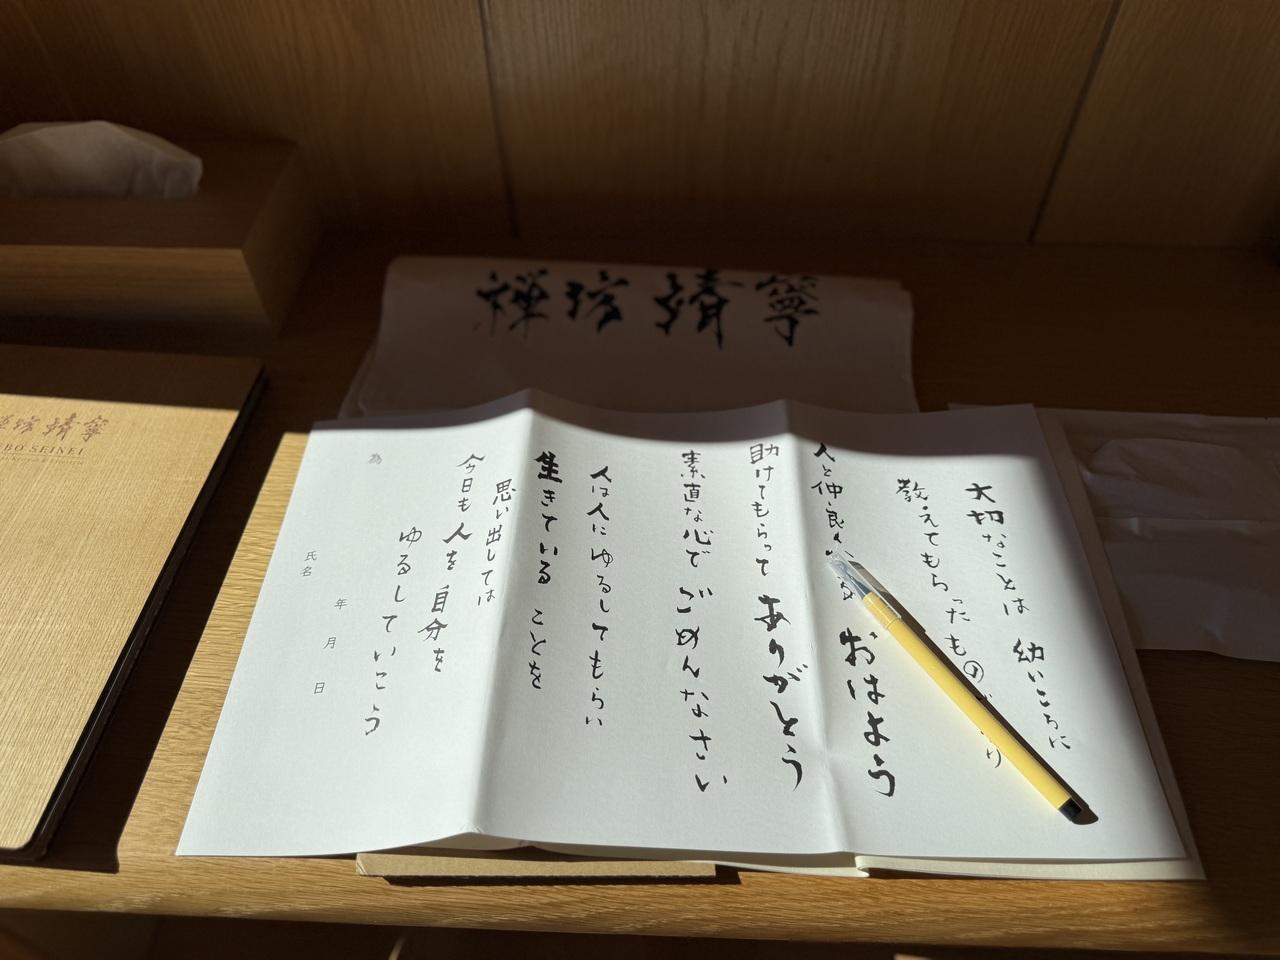 禅坊靖寧
禅坊靖寧
BO SEINEI
大切なことは 幼いころに
教えてもらったもの
り
人と仲良
る おはよう
助けてもらって ありがとう
素直な心で ごめんなさい
人は人にゆるしてもらい
生きている ことを
思い出しては
今日も 人を 自分を
ゆるして いこう
為
年 月 日
氏名